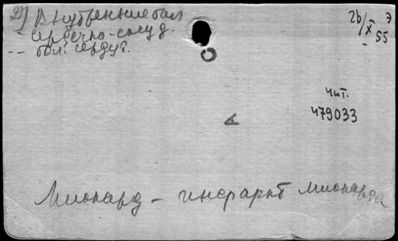 2) Внутренние бол
сердечно-сосуд.
-- бол. сердца.
26/X 55
Э
чит.
479033
Миокард - инфаркт миокарда